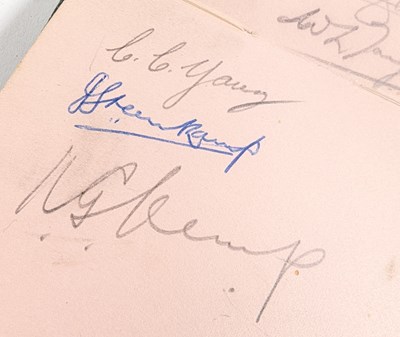 C. C. Young
J Steenkamp
K G Kemp